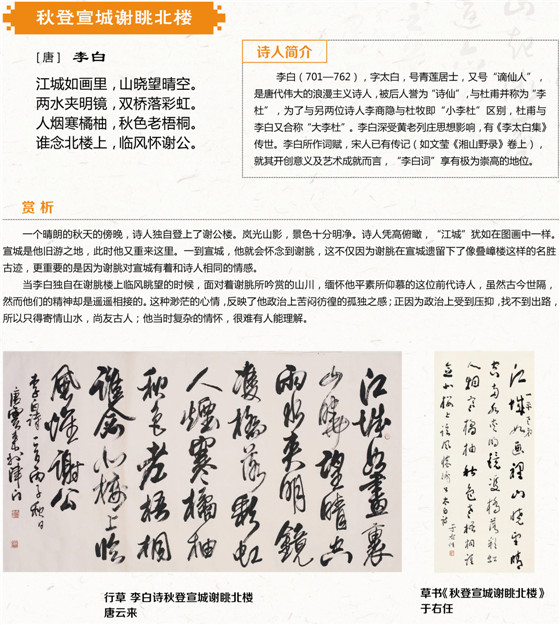 秋登宣城谢眺北楼
[唐] 李白
江城如画里,山晓望晴空。
两水夹明镜,双桥落彩虹。
人烟寒橘柚,秋色老梧桐。
谁念北楼上,临风怀谢公。
诗人简介
李白(701—762),字太白,号青莲居士,又号“谪仙人”,
是唐代伟大的浪漫主义诗人,被后人誉为“诗仙”,与杜甫并称为“李
杜”,为了与另两位诗人李商隐与杜牧即“小李杜”区别,杜甫与
李白又合称“大李杜”。李白深受黄老列庄思想影响,有《李太白集》
传世。李白所作词赋,宋人已有传记(如文莹《湘山野录》卷上),
就其开创意义及艺术成就而言,“李白词”享有极为崇高的地位。
赏析
一个晴朗的秋天的傍晚,诗人独自登上了谢公楼。岚光山影,景色十分明净。诗人凭高俯瞰,“江城”犹如在图画中一样。
宣城是他旧游之地,此时他又重来这里。一到宣城,他就会怀念到谢眺,这不仅因为谢眺在宣城遗留下了像叠嶂楼这样的名胜
古迹,更重要的是因为谢眺对宣城有着和诗人相同的情感。
当李白独自在谢眺楼上临风眺望的时候,面对着谢眺所吟赏的山川,缅怀他平素所仰慕的这位前代诗人,虽然古今世隔,
然而他们的精神却是遥遥相接的。这种渺茫的心情,反映了他政治上苦闷彷徨的孤独之感;正因为政治上受到压抑,找不到出路,
所以只得寄情山水,尚友古人;他当时复杂的情怀,很难有人能理解。
江城如畫裏
山曉望晴空
兩水夾明鏡
雙橋落彩虹
人煙寒橘柚
秋色老梧桐
誰念北樓上臨
風懷謝公
行草 李白诗秋登宣城谢眺北楼
唐云来
江城如画裡山晓望晴
空两水夹明镜双桥落彩虹
人烟寒橘柚秋色老梧桐谁
念北楼上临风怀谢公
草书《秋登宣城谢眺北楼》
于右任